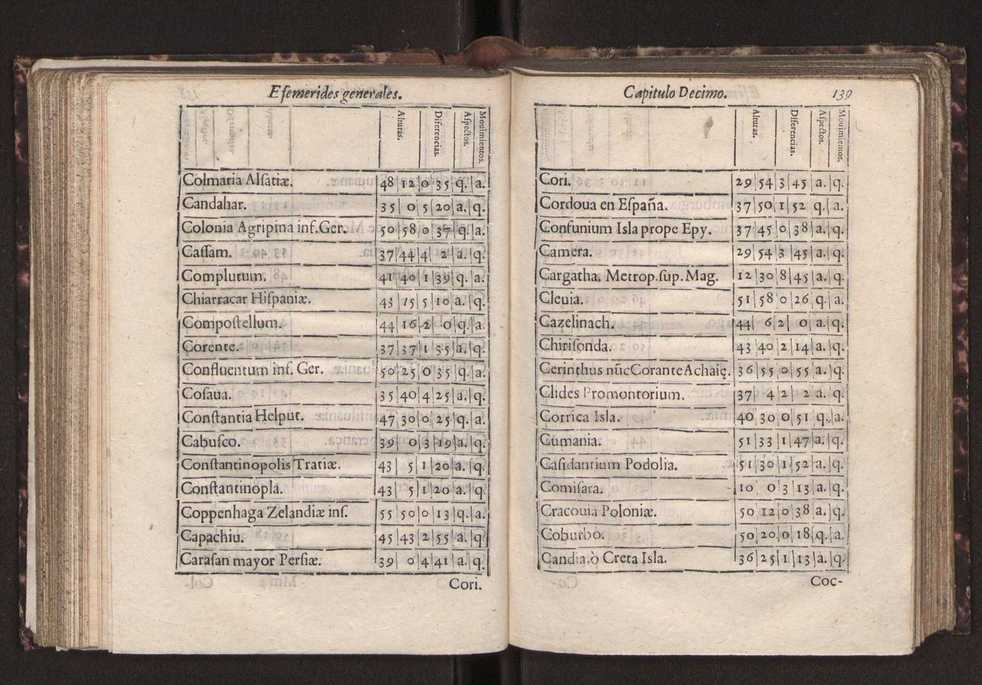 Efemerides generales.
Alturas. Diferencias. Aspectos. Mouimientos.
Colmaria Alsatiæ. 48 12 0 35 q. a.
Candahar. 35 0 5 20 a. q.
Colonia Agripina inf. Ger. 50 58 0 37 q. a.
Cassam. 37 44 4 2 a. q.
Complutum. 41 40 1 39 q. a.
Chiarracar Hispaniæ. 43 15 5 10 a. q.
Compostellum. 44 16 2 0 q. a.
Corente. 37 37 1 35 a. q.
Confluentum inf. Ger. 50 25 0 35 q. a.
Cosaua. 35 40 4 25 a. q.
Constantia Helput. 47 30 0 25 q. a.
Cabusco. 39 0 3 19 a. q.
Constantinopolis Tratiæ. 43 5 1 20 a. q.
Constantinopla. 43 5 1 20 a. q.
Coppenhaga Zelandiæ inf. 55 50 0 13 q. a.
Capachiu. 45 43 2 55 a. q.
Carasan mayor Persiæ. 39 0 4 41 a. q.
Cori.
Capitulo Decimo. 139
Alturas. Diferencias. Aspectos. Mouimientos.
Cori. 29 54 3 45 a. q.
Cordoua en España. 37 50 1 52 q. a.
Confunium Isla prope Epy. 37 45 0 38 a. q.
Camera. 29 54 3 45 a. q.
Cargatha, Metrop. sup. Mag. 12 30 8 45 a. q.
Cleuia. 51 58 0 26 q. a.
Cazelinach. 44 6 2 0 a. q.
Chirisonda. 43 40 2 14 a. q.
Cerinthus nũc Corante Achaię. 36 55 0 55 a. q.
Clides Promontorium. 37 4 2 2 a. q.
Corsica Isla. 40 30 0 51 q. a.
Cumania. 51 33 1 47 a. q.
Casidantium Podolia. 51 30 1 52 a. q.
Comisara. 10 0 3 13 a. q.
Cracouia Poloniæ. 50 12 0 38 a. q.
Coburbo. 50 20 0 18 q. a.
Candia. ò Creta Isla. 36 25 1 13 a. q.
Coc-